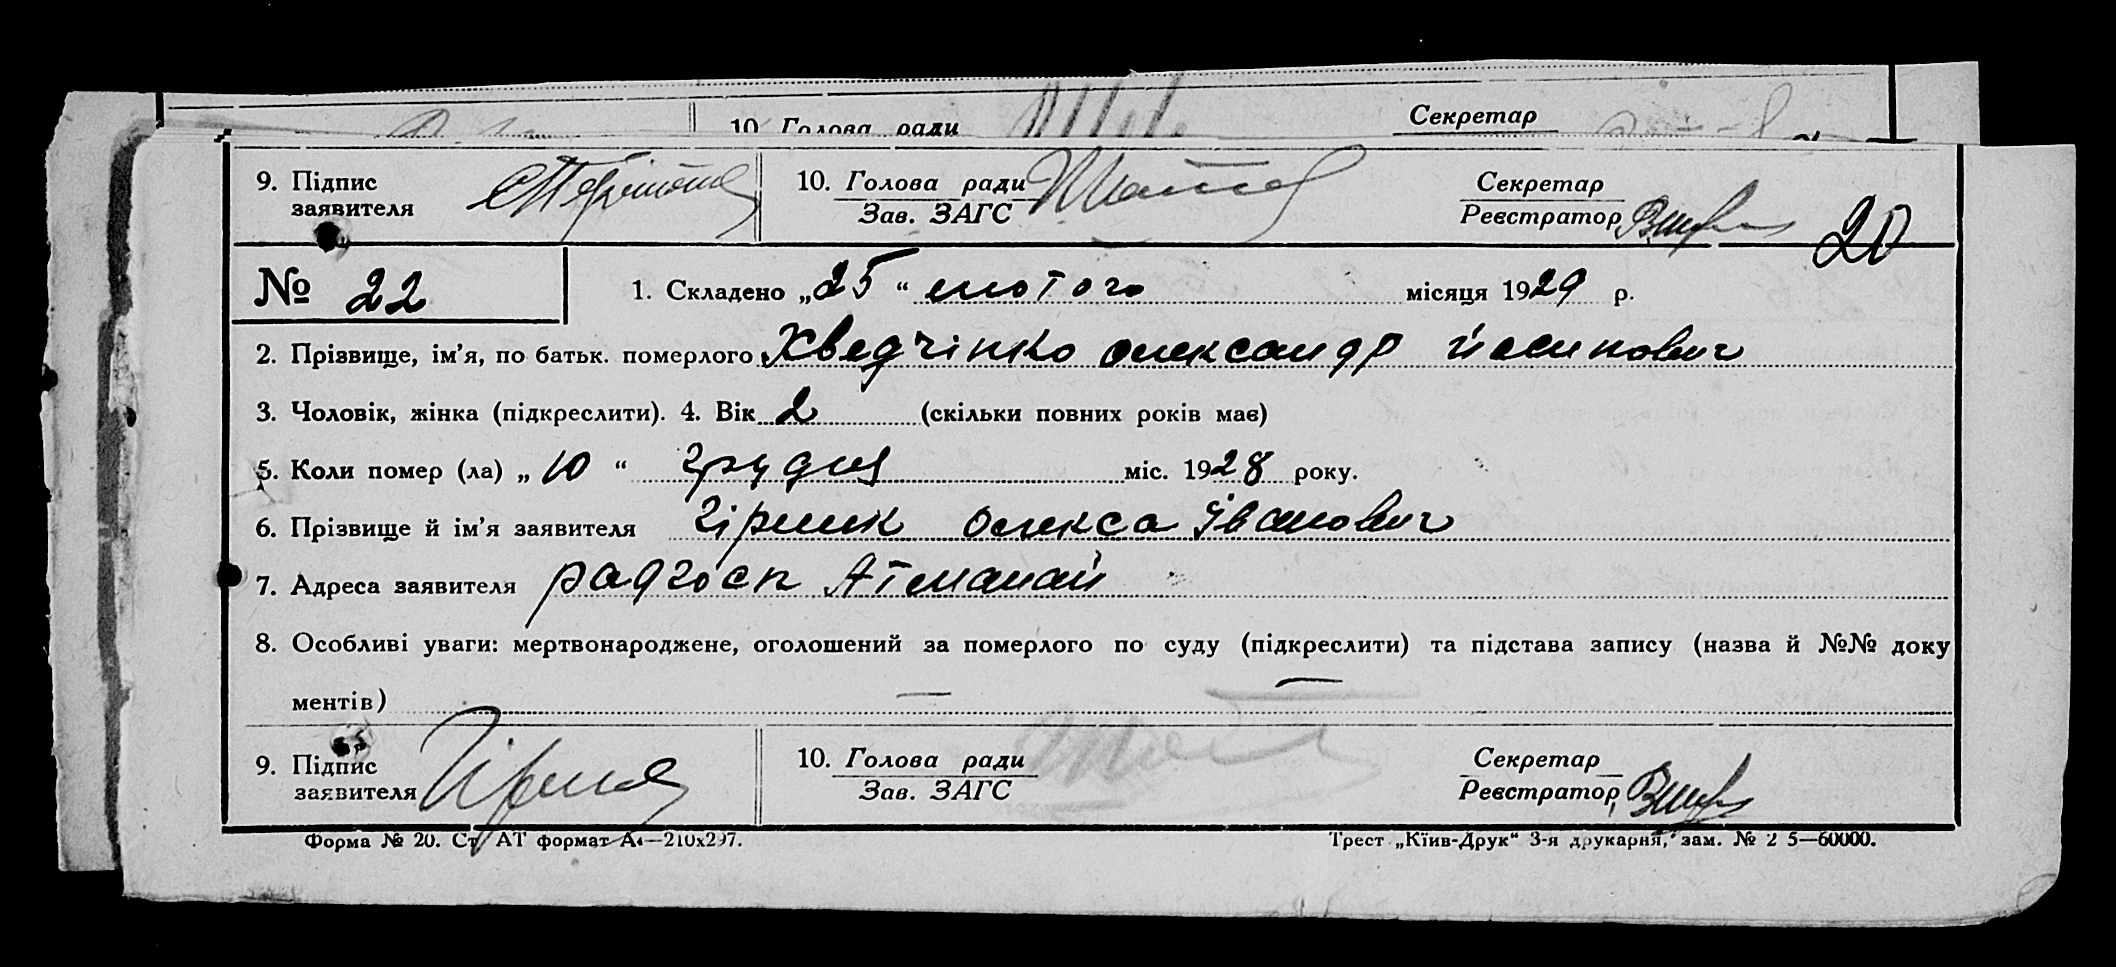 10 Голова ради Секретар
9. Підпис заявителя 10. Голова ради Зав. ЗАГС Секретар Реєстратор
20
№ 22 1. Складено „25“ лютого місяця 1929 р.
2. Прізвище, ім’я, по батьк. померлого Хведчінко Олександр Йосипович
3. Чоловік, жінка (підкреслити). 4. Вік 2 (скільки повних років має)
5. Коли помер (ла) „10“ грудня міс. 1928 року.
6. Прізвище й ім’я заявителя Гірник Олекса Іванович
7. Адреса заявителя радгосп Атманай
8. Особливі уваги: мертвонароджене, оголошений за померлого по суду (підкреслити) та підстава запису (назва й №№ доку
ментів) — —
9. Підпис заявителя 10. Голова ради Зав. ЗАГС Секретар Реєстратор
Форма № 20. Ст. АТ формат А4—210х297. Трест „Київ-Друк“ 3-я друкарня, зам. № 2 5—60000.